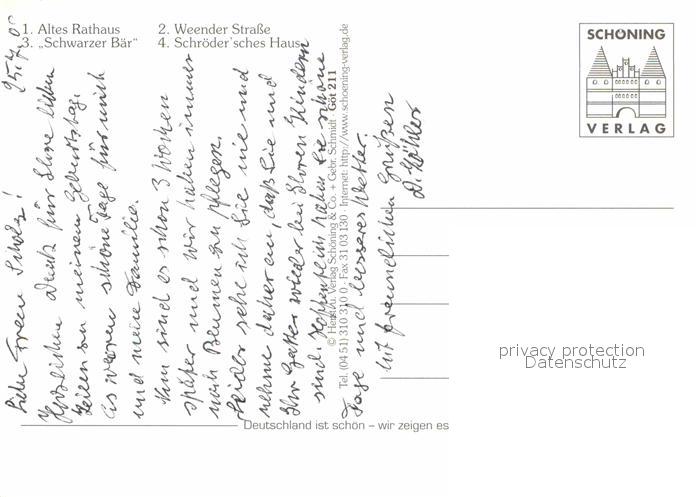 1. Altes Rathaus 2. Weender Straße
3. „Schwarzer Bär“ 4. Schröder'sches Haus
SCHÖNING
VERLAG
25.7.
Liebe Frau Scholz!
Herzlichen Dank für Ihre lieben
Zeilen zu meinem Geburtstag.
Es waren schöne Tage für mich
und meine Familie.
Nun sind es schon 3 Wochen
später und wir haben immer
noch Blumen zu pflegen.
Leider sehe ich Sie nie und
nehme daher an, daß Sie und
Ihr Gatte wieder bei Ihren Kindern
sind. Hoffentlich haben Sie schöne
Tage und besseres Wetter.
Mit freundlichen Grüßen
D. Köhler
© Herst. u. Verlag Schöning & Co. + Gebr. Schmidt · Göt 211
Tel. (04 51) 310 310 0 · Fax 31 03 130 · Internet: http://www.schoening-verlag.de
privacy protection
Datenschutz
Deutschland ist schön – wir zeigen es